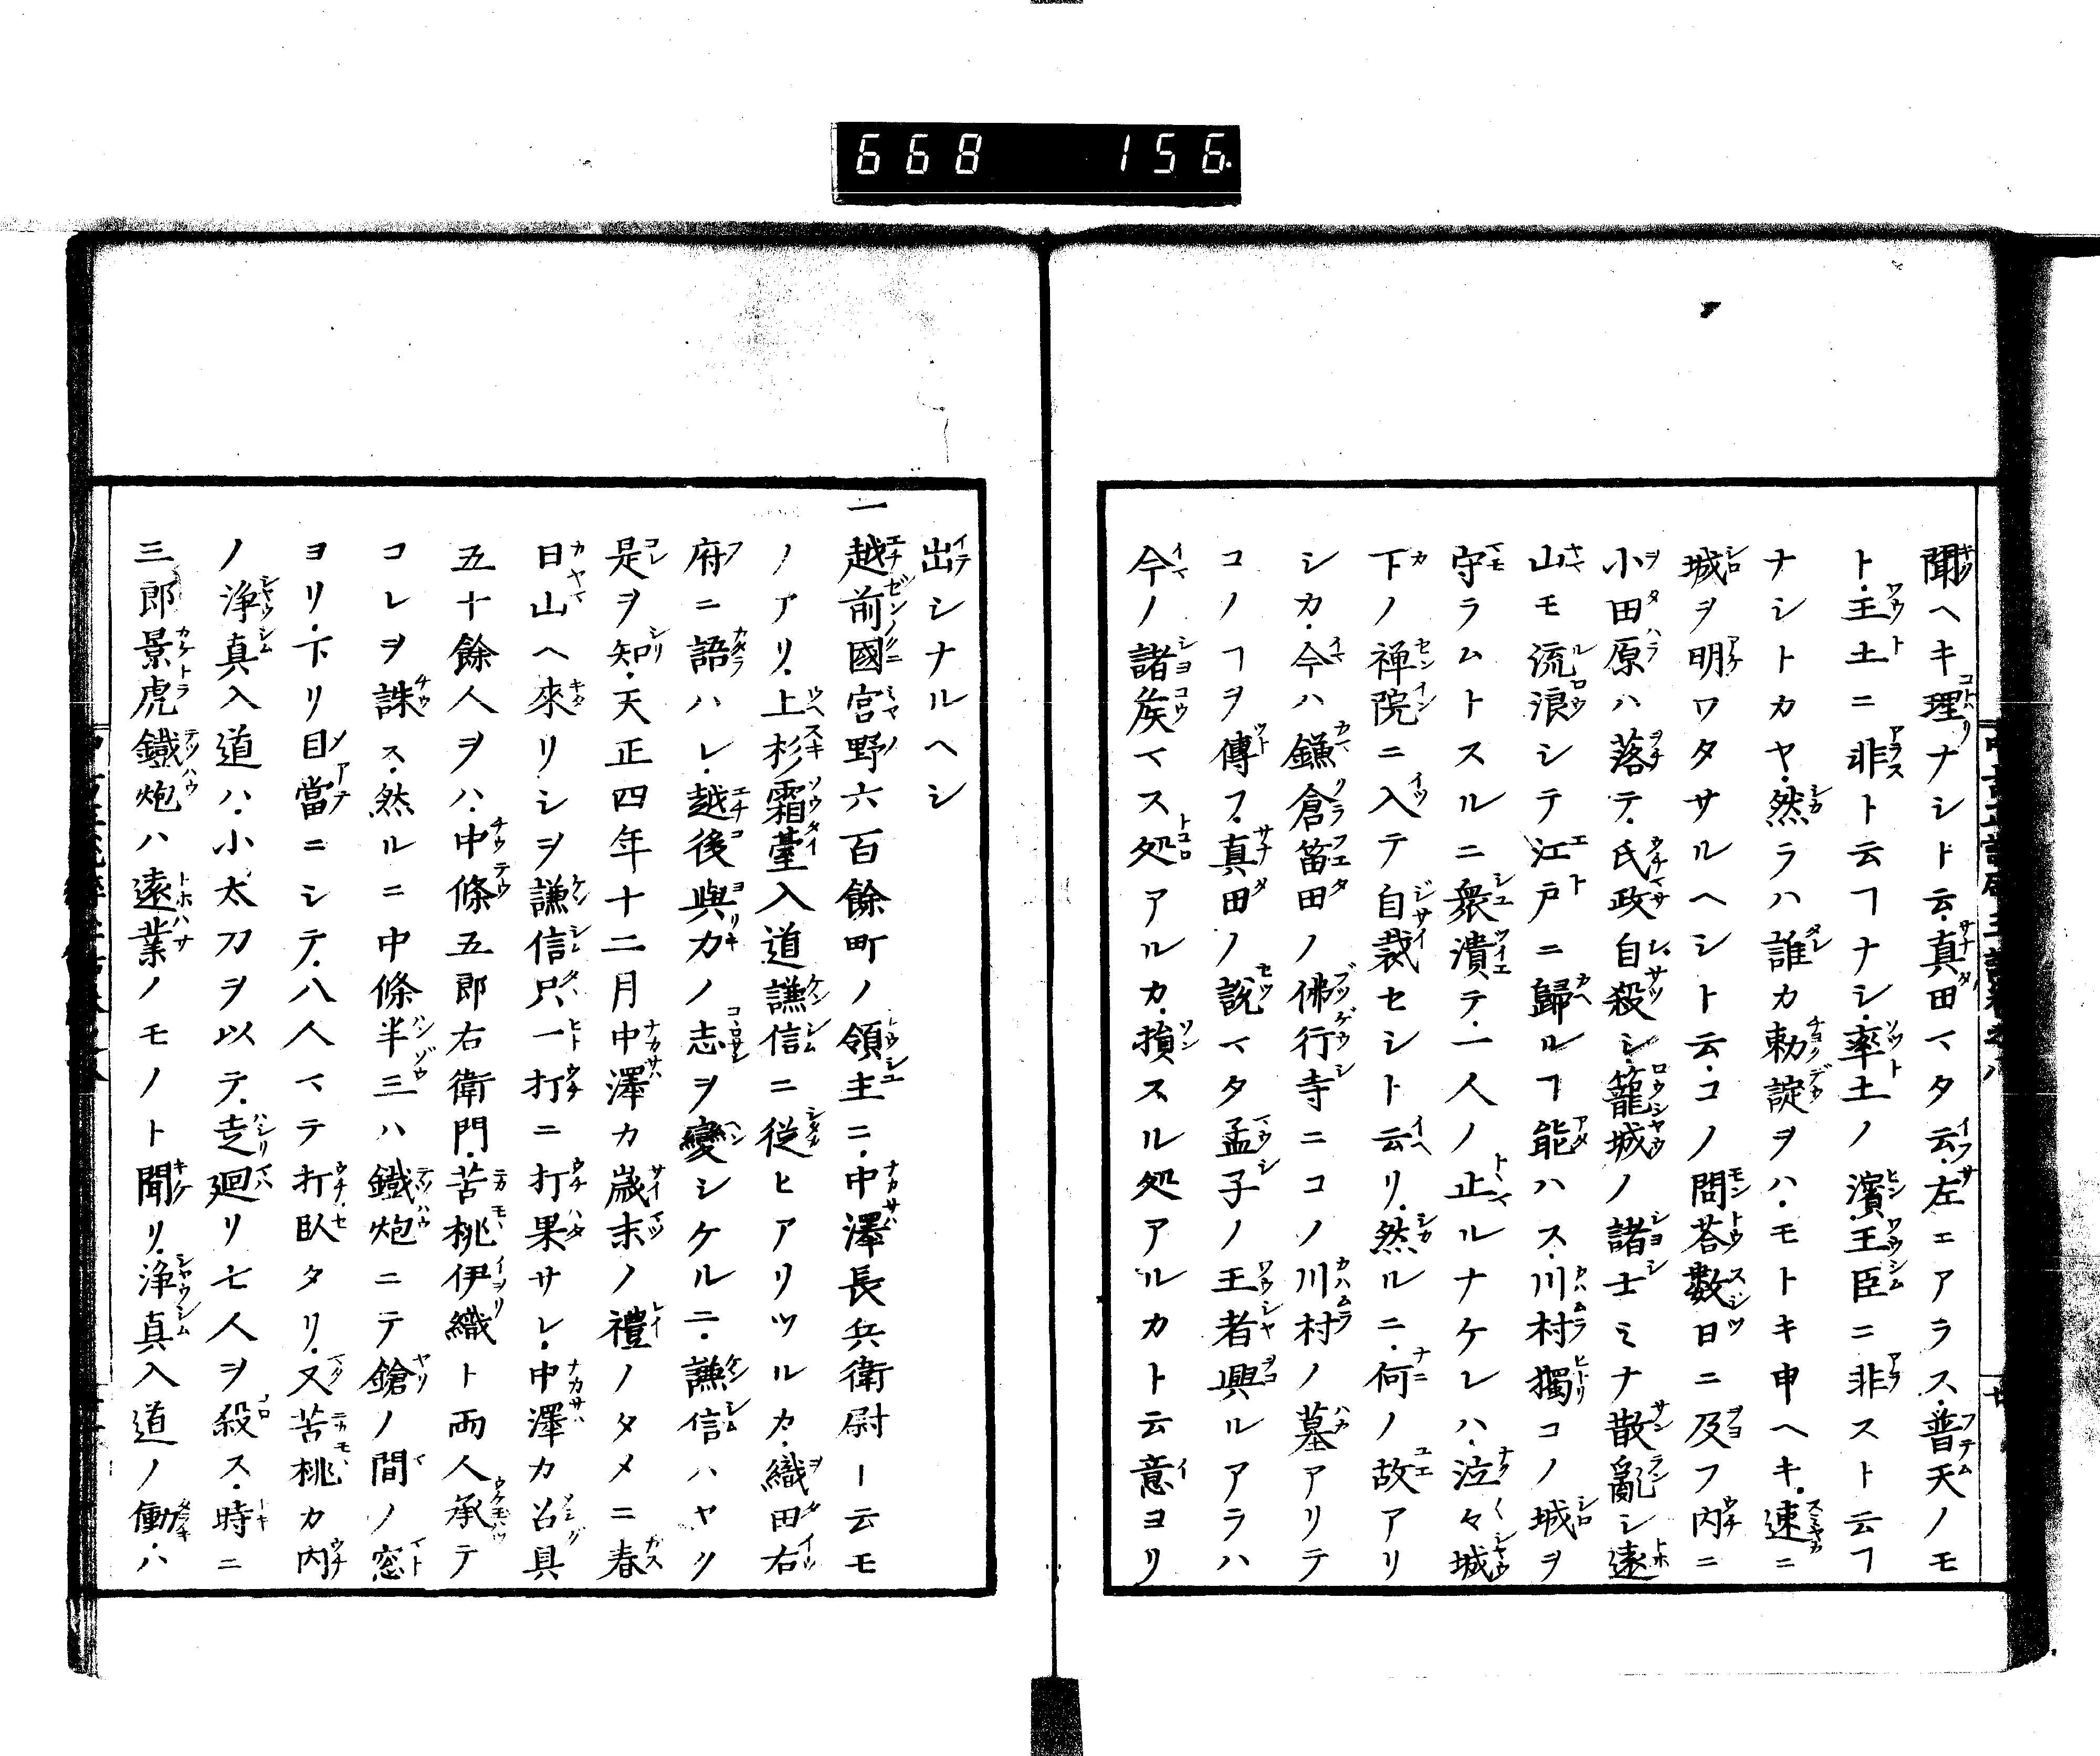 668 156
聞ヘキ理ナシト云.真田マタ云.左ニアラス.普天ノモ
ト.王土ニ非ト云ヿナシ.率土ノ濱.王臣ニ非スト云ヿ
ナシトカヤ.然ラハ誰カ勅諚ヲハ.モトキ申ヘキ.速ニ
城ヲ明ワタサルヘシト云.コノ問荅數日ニ及フ内ニ
小田原ハ落テ.氏政自殺シ.籠城ノ諸士ミナ散亂シ遠
山モ流浪シテ江戸ニ歸ルヿ能ハス.川村獨コノ城ヲ
守ラムトスルニ衆潰テ.一人ノ止ルナケレハ.泣々城
下ノ禅院ニ入テ自裁セシト云リ.然ルニ.何ノ故アリ
シカ.今ハ鎌倉笛田ノ佛行寺ニコノ川村ノ墓アリテ
コノヿヲ傳フ.真田ノ說マタ孟子ノ王者興ルアラハ
今ノ諸矦マス処アルカ.損スル処アルカト云意ヨリ
出シナルヘシ
一越前國宮野六百餘町ノ領主ニ.中澤長兵衛尉ート云モ
ノアリ.上杉霜臺入道謙信ニ從ヒアリツルカ.織田右
府ニ語ハレ.越後與力ノ志ヲ變シケルニ.謙信ハヤク
是ヲ知.天正四年十二月中澤カ歳末ノ禮ノタメニ春
日山ヘ來リシヲ謙信只一打ニ打果サレ.中澤カ召具
五十餘人ヲハ.中條五郎右衛門.苦桃伊織ト両人承テ
コレヲ誅ス.然ルニ中條半三ハ鐵炮ニテ鎗ノ間ノ窓
ヨリ.下リ目當ニシテ.八人マテ打臥タリ.又苦桃カ内
ノ浄真入道ハ.小太刀ヲ以テ.走廻リ七人ヲ殺ス.時ニ
三郎景虎鐵炮ハ遠業ノモノト聞リ.浄真入道ノ働.ハ